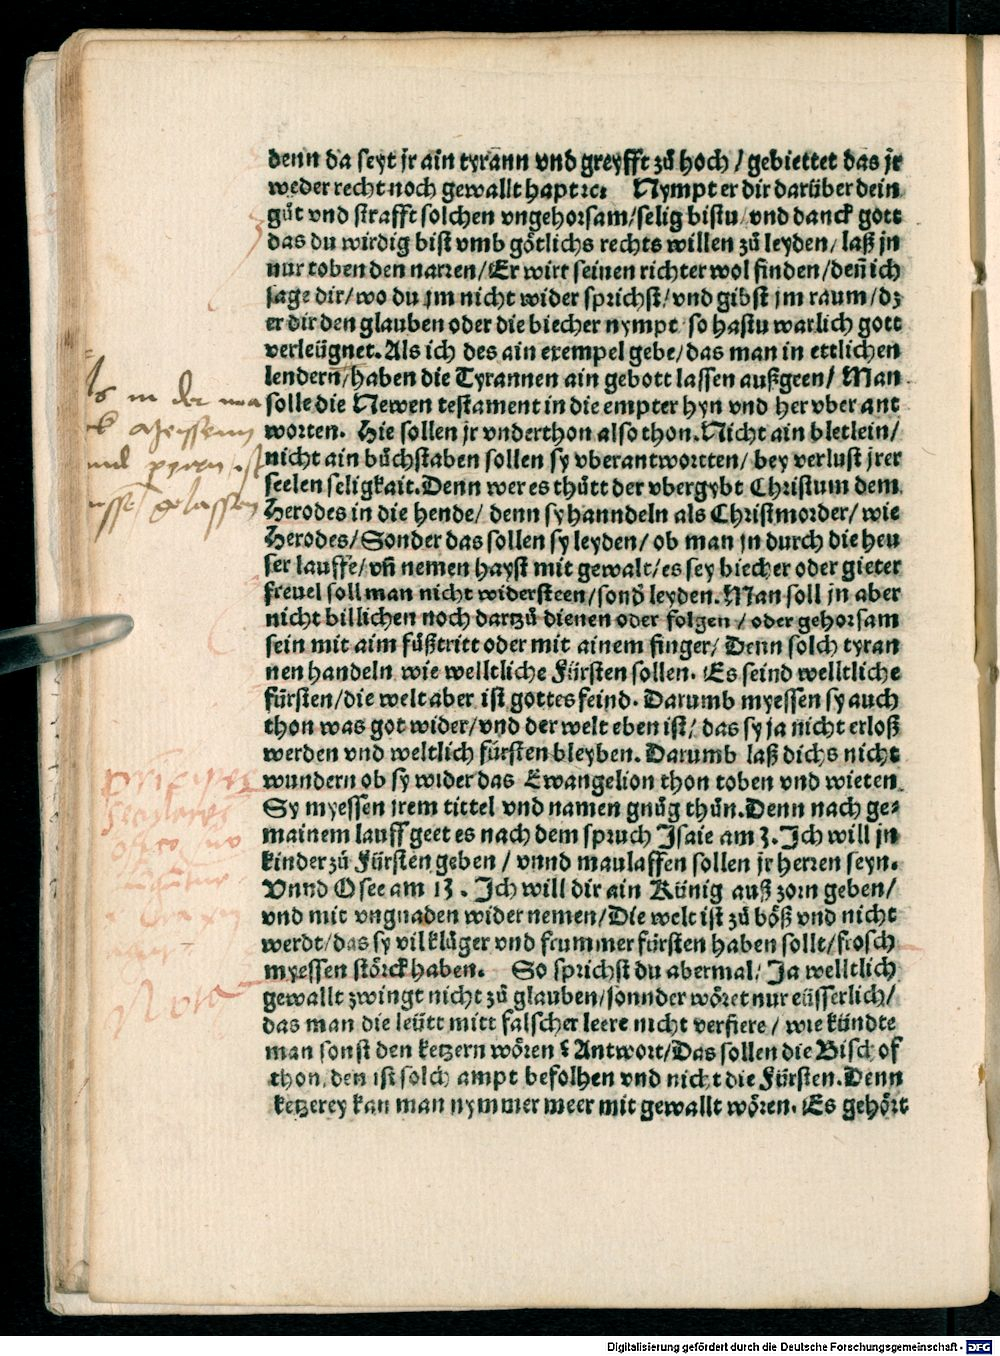 denn da seyt jr ain tyrann vnd greyfft zů hoch / gebiettet das jr
weder recht noch gewallt hapt ꝛc. Nympt er dir darüber dein
gůt vnd strafft solchen vngehorsam/selig bistu/vnd danck gott
das du wirdig bist vmb götlichs rechts willen zů leyden/laß jn
nur toben den narren/Er wirt seinen richter wol finden/deñ ich
sage dir/wo du jm nicht wider sprichst/vnd gibst jm raum/dz
er dir den glauben oder die biecher nympt so hastu warlich gott
verleügnet. Als ich des ain exempel gebe/das man in ettlichen
lendern/haben die Tyrannen ain gebott lassen außgeen/ Man
solle die Newen testament in die empter hyn vnd her vber ant
worten. Hie sollen jr vnderthon also thon. Nicht ain bletlein/
nicht ain bůchstaben sollen sy vberantwortten/ bey verlust jrer
seelen seligkait. Denn wer es thůtt der vbergybt Christum dem
Herodes in die hende/ denn sy hanndeln als Christmorder/ wie
Herodes/Sonder das sollen sy leyden/ ob man jn durch die heu
ser lauffe/vñ nemen hayst mit gewalt/es sey biecher oder gieter
freuel soll man nicht widersteen/sond̛ leyden. Man soll jn aber
nicht billichen noch dartzů dienen oder folgen / oder gehorsam
sein mit aim fůßtritt oder mit ainem finger/ Denn solch tyran
nen handeln wie welltliche Fürsten sollen. Es seind welltliche
fürsten/die welt aber ist gottes feind. Darumb myessen sy auch
thon was got wider/vnd der welt eben ist/ das sy ja nicht erloß
werden vnd weltlich fürsten bleyben. Darumb laß dichs nicht
wundern ob sy wider das Ewangelion thon toben vnd wieten
Sy myessen jrem tittel vnd namen gnůg thůn. Denn nach ge⸗
mainem lauff geet es nach dem spruch Jsaie am 3. Jch will jn
kinder zů Fürsten geben / vnnd maulaffen sollen jr herren seyn.
Vnnd Osee am 13. Jch will dir ain Künig auß zorn geben/
vnd mit vngnaden wider nemen/Die welt ist zů böß vnd nicht
werdt/das sy vil klůger vnd frummer fürsten haben sollt/frosch
myessen störck haben. So sprichst du abermal/ Ja welltlich
gewallt zwingt nicht zů glauben/sonnder wöret nur eüsserlich/
das man die leütt mitt falscher leere nicht verfiere / wie kündte
man sonst den ketzern wören? Antwort/Das sollen die Bischof
thon, den ist solch ampt befolhen vnd nicht die Fürsten. Denn
ketzerey kan man nymmer meer mit gewallt wören. Es gehört
in der
gelassen
principes
seculares
Nota
Digitalisierung gefördert durch die Deutsche Forschungsgemeinschaft - DFG